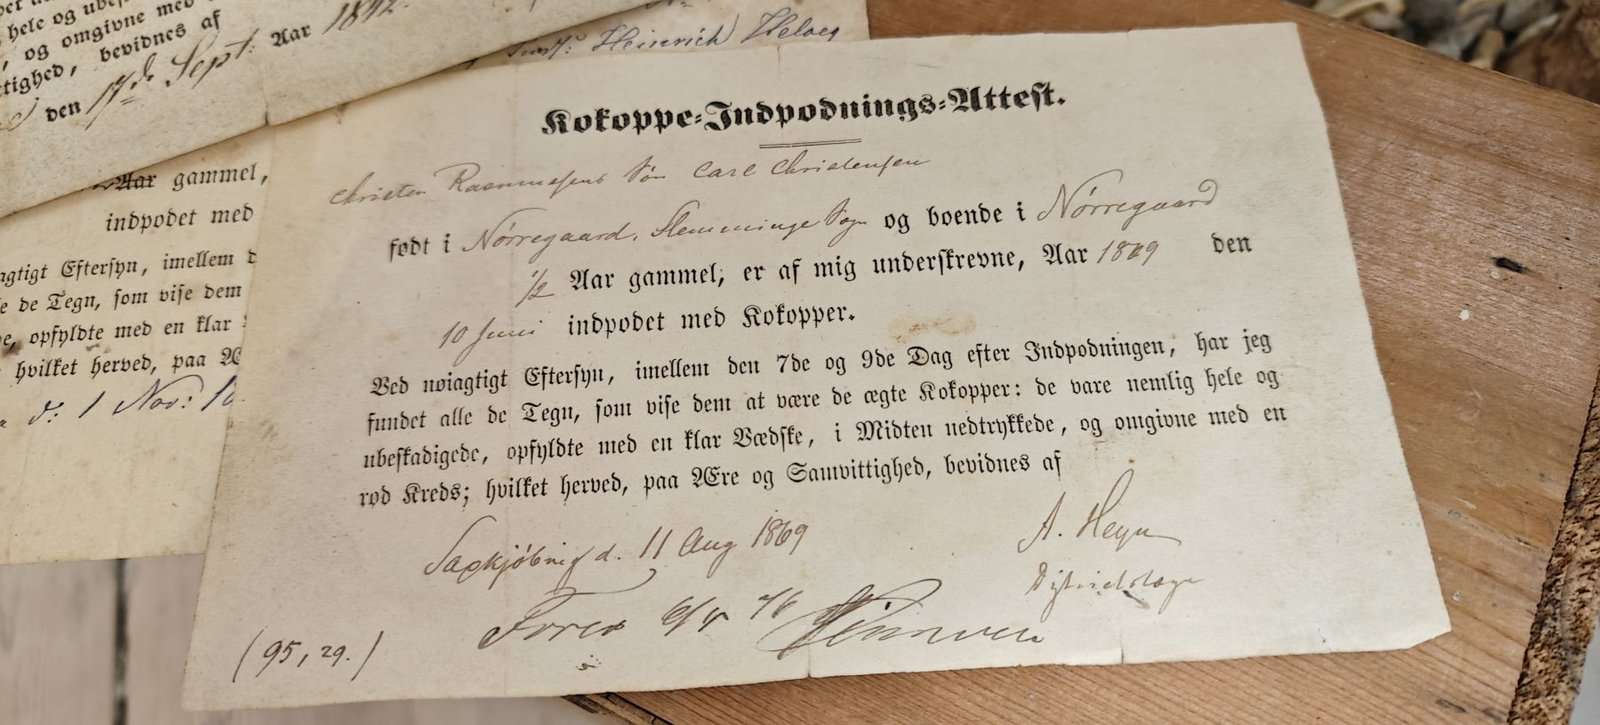 hele og
og omgivne med
tighed, bevidnes af
den 17de Sept: Aar 18
Heinrich
Aar gammel,
indpodet med
agtigt Eftersyn, imellem d
e de Tegn, som vise dem
e, opfyldte med en klar
hvilket herved, paa Æ
d: 1 Nov:
Kokoppe-Indpodnings-Attest.
Christen Rasmussens Søn Carl Christensen
født i Nørregaard, Slemminge Sogn og boende i Nørregaard
1/2 Aar gammel, er af mig underskrevne, Aar 1869 den
10 Juni indpodet med Kokopper.
Ved nøiagtigt Eftersyn, imellem den 7de og 9de Dag efter Indpodningen, har jeg
fundet alle de Tegn, som vise dem at være de ægte Kokopper: de vare nemlig hele og
ubeskadigede, opfyldte med en klar Vædske, i Midten nedtrykkede, og omgivne med en
rød Kreds; hvilket herved, paa Ære og Samvittighed, bevidnes af
Saxkjøbing d. 11 Aug 1869
A. Heyn
Distriktslæge
(95, 29.)